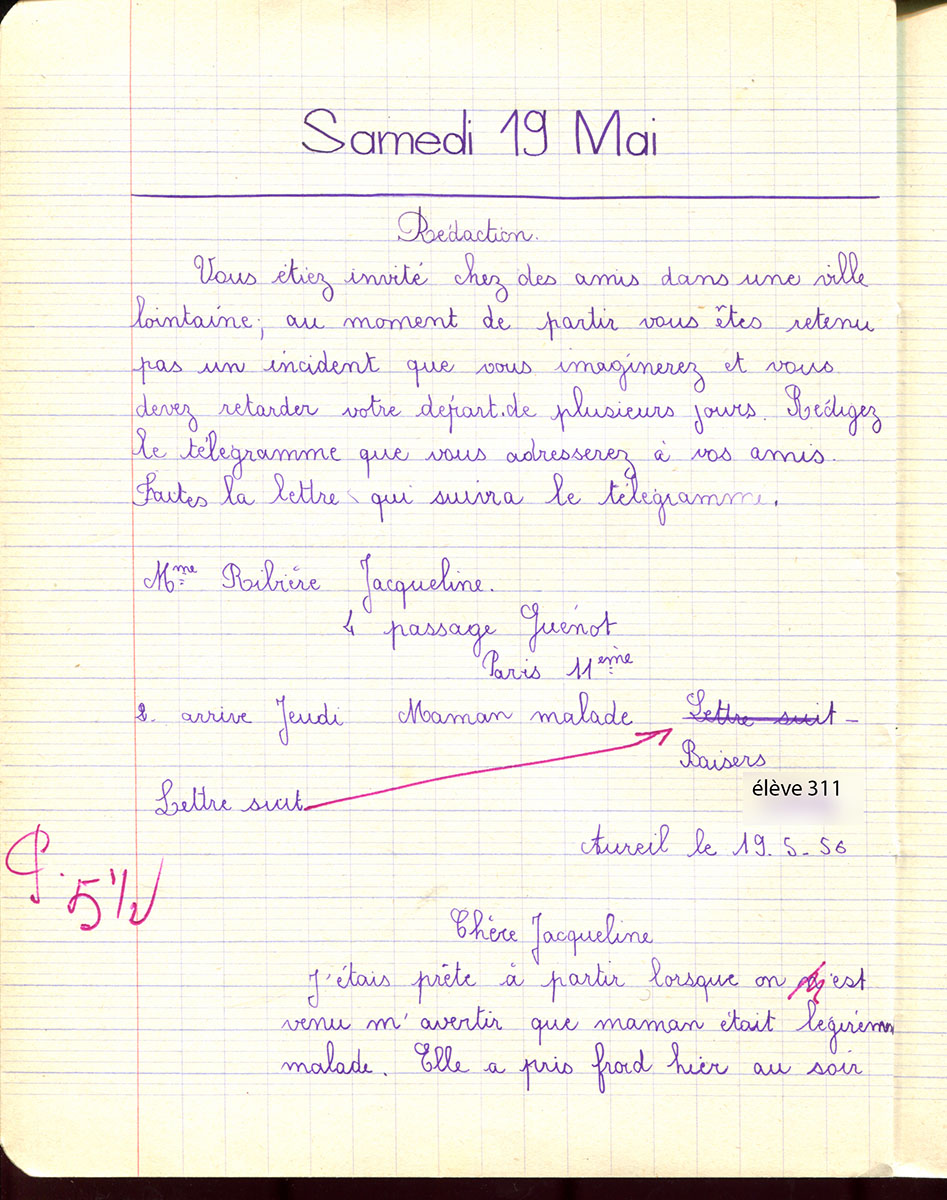 Samedi 19 Mai
Rédaction.
Vous étiez invité chez des amis dans une ville
lointaine; au moment de partir vous êtes retenu
pas un incident que vous imaginerez et vous
devez retarder votre départ.de plusieurs jours. Rédigez
le télégramme que vous adresserez à vos amis.
Faites la lettre qui suivra le télégramme.
Mme Ribière Jacqueline.
4 passage Guénot
Paris 11ème
2. arrive Jeudi Maman malade Lettre suit -
Baisers
élève 311
Lettre suit
Aureil le 19.5-56
5 1/2
Chère Jacqueline
J'étais prête à partir lorsque on n'est
venu m'avertir que maman était légèrem
malade. Elle a pris froid hier au soir